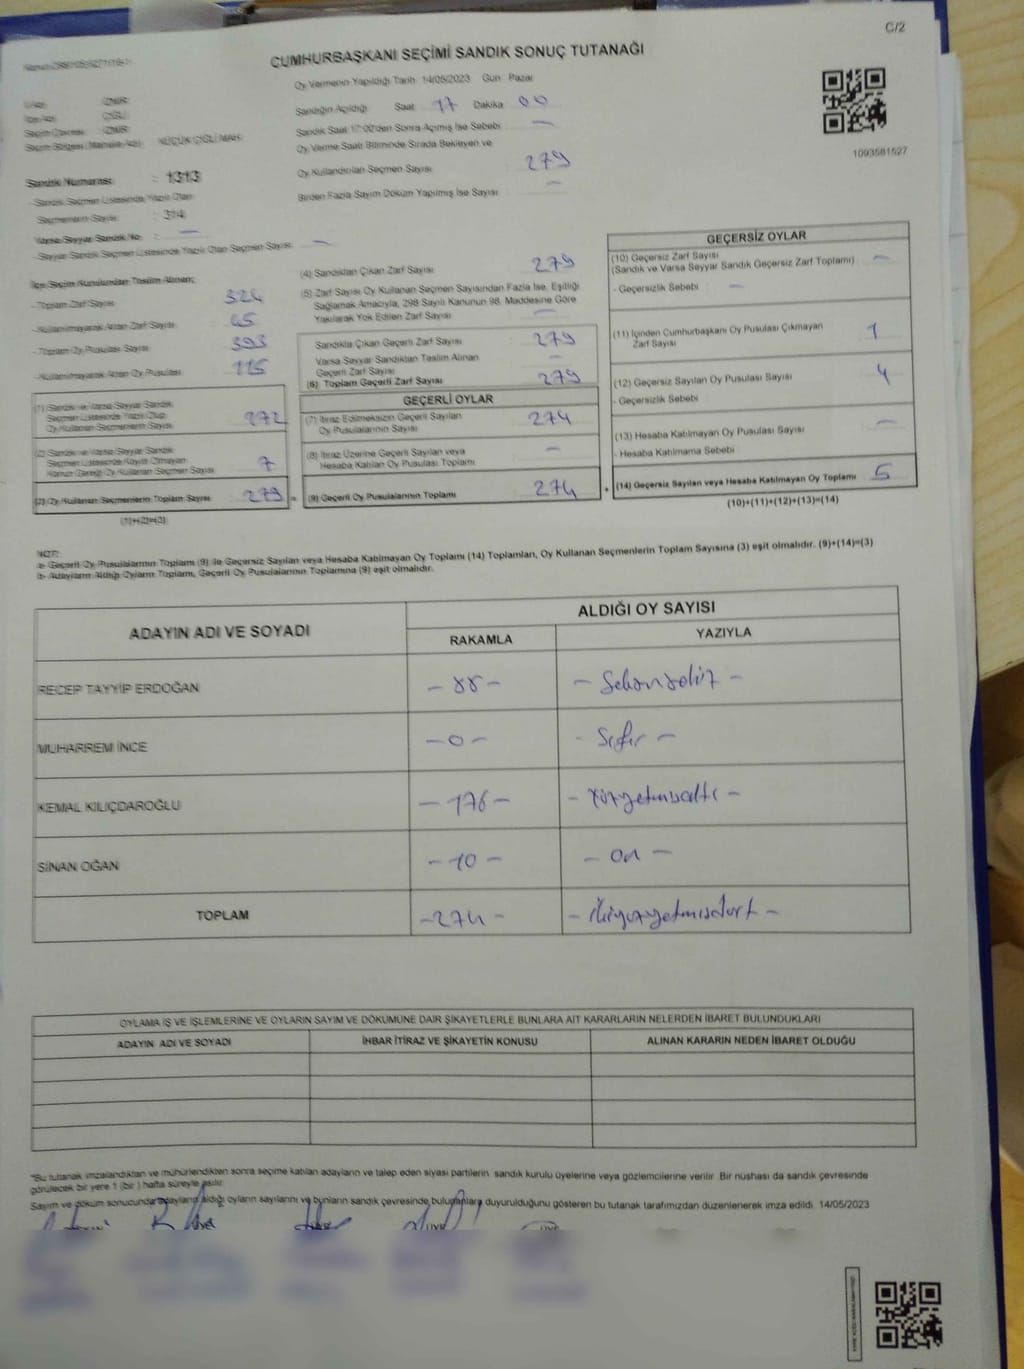 C/2
CUMHURBAŞKANI SEÇİMİ SANDIK SONUÇ TUTANAĞI
Oy Vermenin Yapıldığı Tarih 14/05/2023 Gün Pazar
İZMİR
ÇİĞLİ
İZMİR
KÜÇÜK ÇİĞLİ MAH.
Sandığın Açıldığı Saat 17 Dakika 00
Sandık Saat 17:00'den Sonra Açmış İse Sebebi —
Oy Verme Saati Bitiminde Sırada Bekleyen ve
Oy Kullandırılan Seçmen Sayısı 279
Birden Fazla Sayım Döküm Yapılmış İse Sayısı —
1093581527
Sandık Numarası : 1313
- Sandık Seçmen Listesinde Yazılı Olan
Seçmenlerin Sayısı : 314
Varsa Seyyar Sandık No : —
- Seyyar Sandık Seçmen Listesinde Yazılı Olan Seçmen Sayısı —
İlçe Seçim Kurulundan Teslim Alınan;
- Toplam Zarf Sayısı 324
- Kullanılmayarak Artan Zarf Sayısı 45
- Toplam Oy Pusulası Sayısı 393
- Kullanılmayarak Artan Oy Pusulası 115
(1) Sandık ve Varsa Seyyar Sandık
Seçmen Listesinde Yazılı Olup
Oy Kullanan Seçmenlerin Sayısı 272
(2) Sandık ve Varsa Seyyar Sandık
Seçmen Listesinde Kayıtlı Olmayan
Kanun Gereği Oy Kullanan Seçmen Sayısı 7
(3) Oy Kullanan Seçmenlerin Toplam Sayısı 279 =
(1)+(2)=(3)
(4) Sandıktan Çıkan Zarf Sayısı 279
(5) Zarf Sayısı Oy Kullanan Seçmen Sayısından Fazla İse, Eşitliği
Sağlamak Amacıyla, 298 Sayılı Kanunun 98. Maddesine Göre
Yakılarak Yok Edilen Zarf Sayısı —
Sandıkta Çıkan Geçerli Zarf Sayısı 279
Varsa Seyyar Sandıktan Teslim Alınan
Geçerli Zarf Sayısı —
(6) Toplam Geçerli Zarf Sayısı 279
GEÇERLİ OYLAR
(7) İtiraz Edilmeksizin Geçerli Sayılan
Oy Pusulalarının Sayısı 274
(8) İtiraz Üzerine Geçerli Sayılan veya
Hesaba Katılan Oy Pusulası Toplamı —
(9) Geçerli Oy Pusulalarının Toplamı 274 +
GEÇERSİZ OYLAR
(10) Geçersiz Zarf Sayısı
(Sandık ve Varsa Seyyar Sandık Geçersiz Zarf Toplamı) —
- Geçersizlik Sebebi —
(11) İçinden Cumhurbaşkanı Oy Pusulası Çıkmayan
Zarf Sayısı 1
(12) Geçersiz Sayılan Oy Pusulası Sayısı 4
- Geçersizlik Sebebi
(13) Hesaba Katılmayan Oy Pusulası Sayısı —
- Hesaba Katılmama Sebebi
(14) Geçersiz Sayılan veya Hesaba Katılmayan Oy Toplamı 5
(10)+(11)+(12)+(13)=(14)
NOT:
a- Geçerli Oy Pusulalarının Toplamı (9) ile Geçersiz Sayılan veya Hesaba Katılmayan Oy Toplamı (14) Toplamları, Oy Kullanan Seçmenlerin Toplam Sayısına (3) eşit olmalıdır. (9)+(14)=(3)
b- Adayların Aldığı Oyların Toplamı, Geçerli Oy Pusulalarının Toplamına (9) eşit olmalıdır.
ADAYIN ADI VE SOYADI
ALDIĞI OY SAYISI
RAKAMLA YAZIYLA
RECEP TAYYİP ERDOĞAN - 88 - - Seksensekiz -
MUHARREM İNCE - 0 - - Sıfır -
KEMAL KILIÇDAROĞLU - 176 - - Yüzyetmişaltı -
SİNAN OĞAN - 10 - - On -
TOPLAM - 274 - - ikiyüzyetmişdört -
OYLAMA İŞ VE İŞLEMLERİNE VE OYLARIN SAYIM VE DÖKÜMÜNE DAİR ŞİKAYETLERLE BUNLARA AİT KARARLARIN NELERDEN İBARET BULUNDUKLARI
ADAYIN ADI VE SOYADI İHBAR İTİRAZ VE ŞİKAYETİN KONUSU ALINAN KARARIN NEDEN İBARET OLDUĞU
*Bu tutanak imzalandıktan ve mühürlendikten sonra seçime katılan adayların ve talep eden siyasi partilerin sandık kurulu üyelerine veya gözlemcilerine verilir. Bir nüshası da sandık çevresinde
görülecek bir yere 1 (bir) hafta süreyle asılır.
Sayım ve döküm sonucunda adayların aldığı oyların sayılarını ve bunların sandık çevresinde bulunanlara duyurulduğunu gösteren bu tutanak tarafımızdan düzenlenerek imza edildi. 14/05/2023